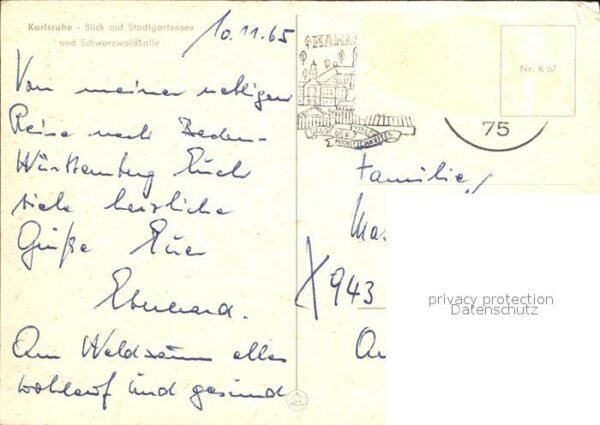 Karlsruhe · Blick auf Stadtgartensee
und Schwarzwaldhalle
10.11.65
Von meiner nebligen
Reise nach Baden-
Württemberg Euch
viele herzliche
Grüße Euer
Eberhard.
Am Waldsaum alles
wohlauf und gesund
KARL
STADT DER
MÖGLICHKEITEN
Nr. K 67
75
Familie
Ma
943
privacy protection
Datenschutz